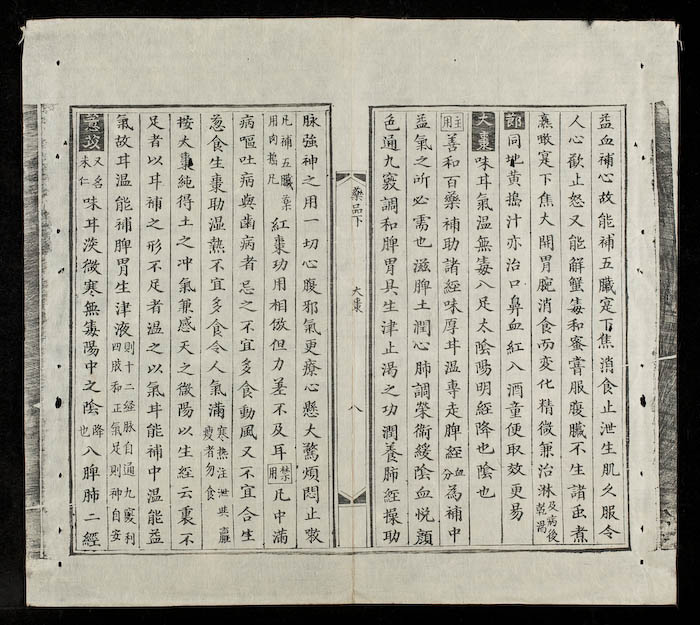 益血補心故能補五臟寔下焦消食止泄生肌久服令
人心歡止怒又能解蟹毒和蜜嘗服腹臟不生諸虫煮
熟啖寔下焦大開胃脘消食而変化精微兼治淋及病後乾渴
節同地黃搗汁亦治口鼻血紅入酒童便取效更易
大棗味甘氣温無毒入足太陰陽明經降也陰也
主用善和百藥補助諸經味厚甘温專走脾經血分為補中
益氣之所必需也滋脾土潤心肺調榮衛緩陰血悦顏
色通九竅調和脾胃具生津止渴之功潤養肺經操助
藥品下
大棗
八
脉強神之用一切心腹邪氣更療心懸大驚煩悶止嗽
凡補五臟棗用肉搗凡紅棗功用相倣但力差不及耳禁用凡中滿
病嘔吐病與齒病者忌之不宜多食動風又不宜合生
葱食生棗助湿熱不宜多食令人氣滿寒热注泄與羸瘦者勿食
按大棗純得土之冲氣兼感天之微陽以生經云裏不
足者以甘補之形不足者温之以氣甘能補中温能益
氣故甘温能補脾胃生津液則十二經脉自通九竅利四肢和正氣足則神自安
薏苡又名米仁味甘淡微寒無毒陽中之陰降也入脾肺二經